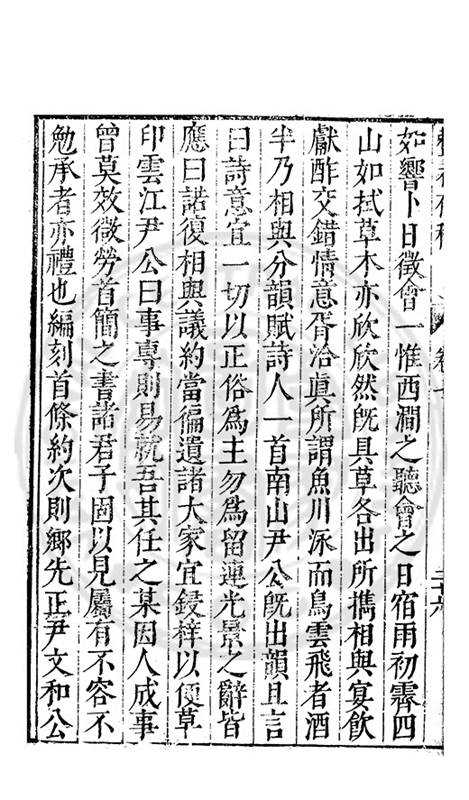 如響卜日徵會一惟西澗之聽會之日宿雨初霽四
山如拭草木亦欣欣然旣具草各出所擕相與宴飲
獻酢交錯情意胥洽眞所謂魚川泳而鳥雲飛者酒
半乃相與分韻賦詩人一首南山尹公旣出韻且言
曰詩意宜一切以正俗爲主勿爲留連光景之辭皆
應曰諾復相與議約當徧遺諸大家宜鋟梓以便草
印雲江尹公曰事專則易就吾其任之某因人成事
曾莫效微勞首簡之書諸君子固以見屬有不容不
勉承者亦禮也編刻首條約次則鄉先正尹文和公